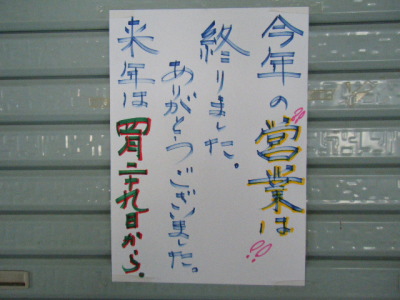 今年の営業は
終りました。
ありがとうございました。
来年は四月二十九日から.